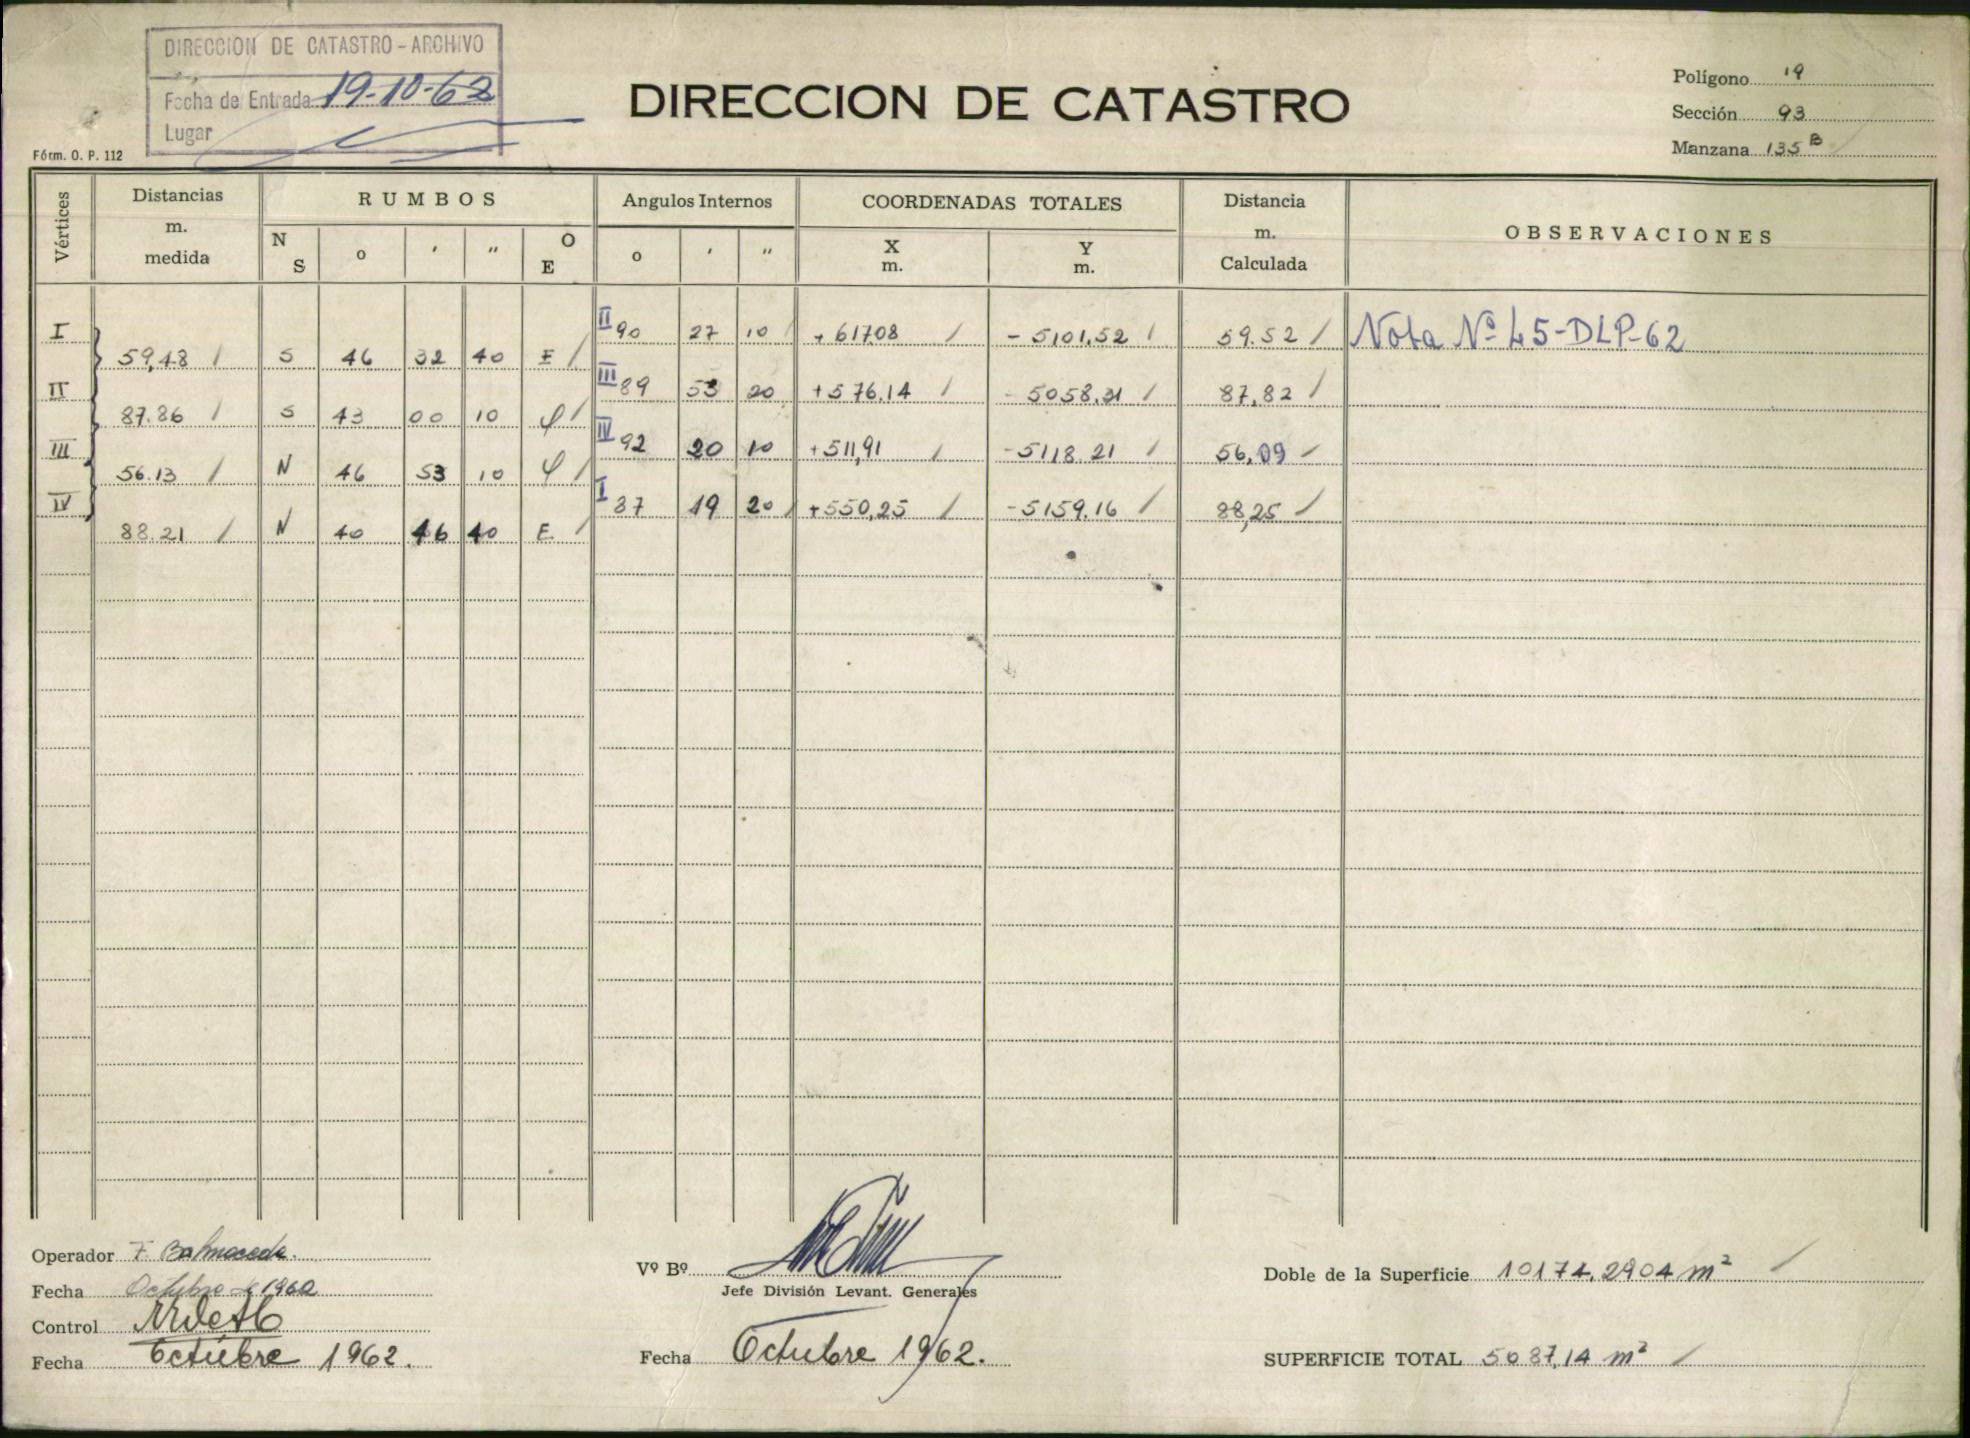 DIRECCION DE CATASTRO - ARCHIVO
Fecha de Entrada 19-10-62
Lugar
Fórm. O. P. 112
DIRECCION DE CATASTRO
Polígono 19
Sección 93
Manzana 135 B
Vértices
Distancias m. medida
RUMBOS
N S o ' " O E
Angulos Internos
o ' "
COORDENADAS TOTALES
X m. Y m.
Distancia m. Calculada
OBSERVACIONES
I
II 90 27 10 + 61708 - 5101,52 59.52 Nota Nº 45-DLP-62
59,48 S 46 32 40 E
II
III 89 53 20 + 576,14 - 5058,31 87,82
87.86 S 43 00 10 φ
III
IV 92 20 10 + 511,91 - 5118.21 56,09
56.13 N 46 53 10 φ
IV
I 87 19 20 + 550,25 - 5159.16 88,25
88.21 N 40 46 40 E
Operador F. Balmaceda.
Fecha Octubre de 1962
Control
Fecha Octubre 1962.
Vº Bº
Jefe División Levant. Generales
Fecha Octubre 1962.
Doble de la Superficie 10174,2904 m²
SUPERFICIE TOTAL 5087,14 m²